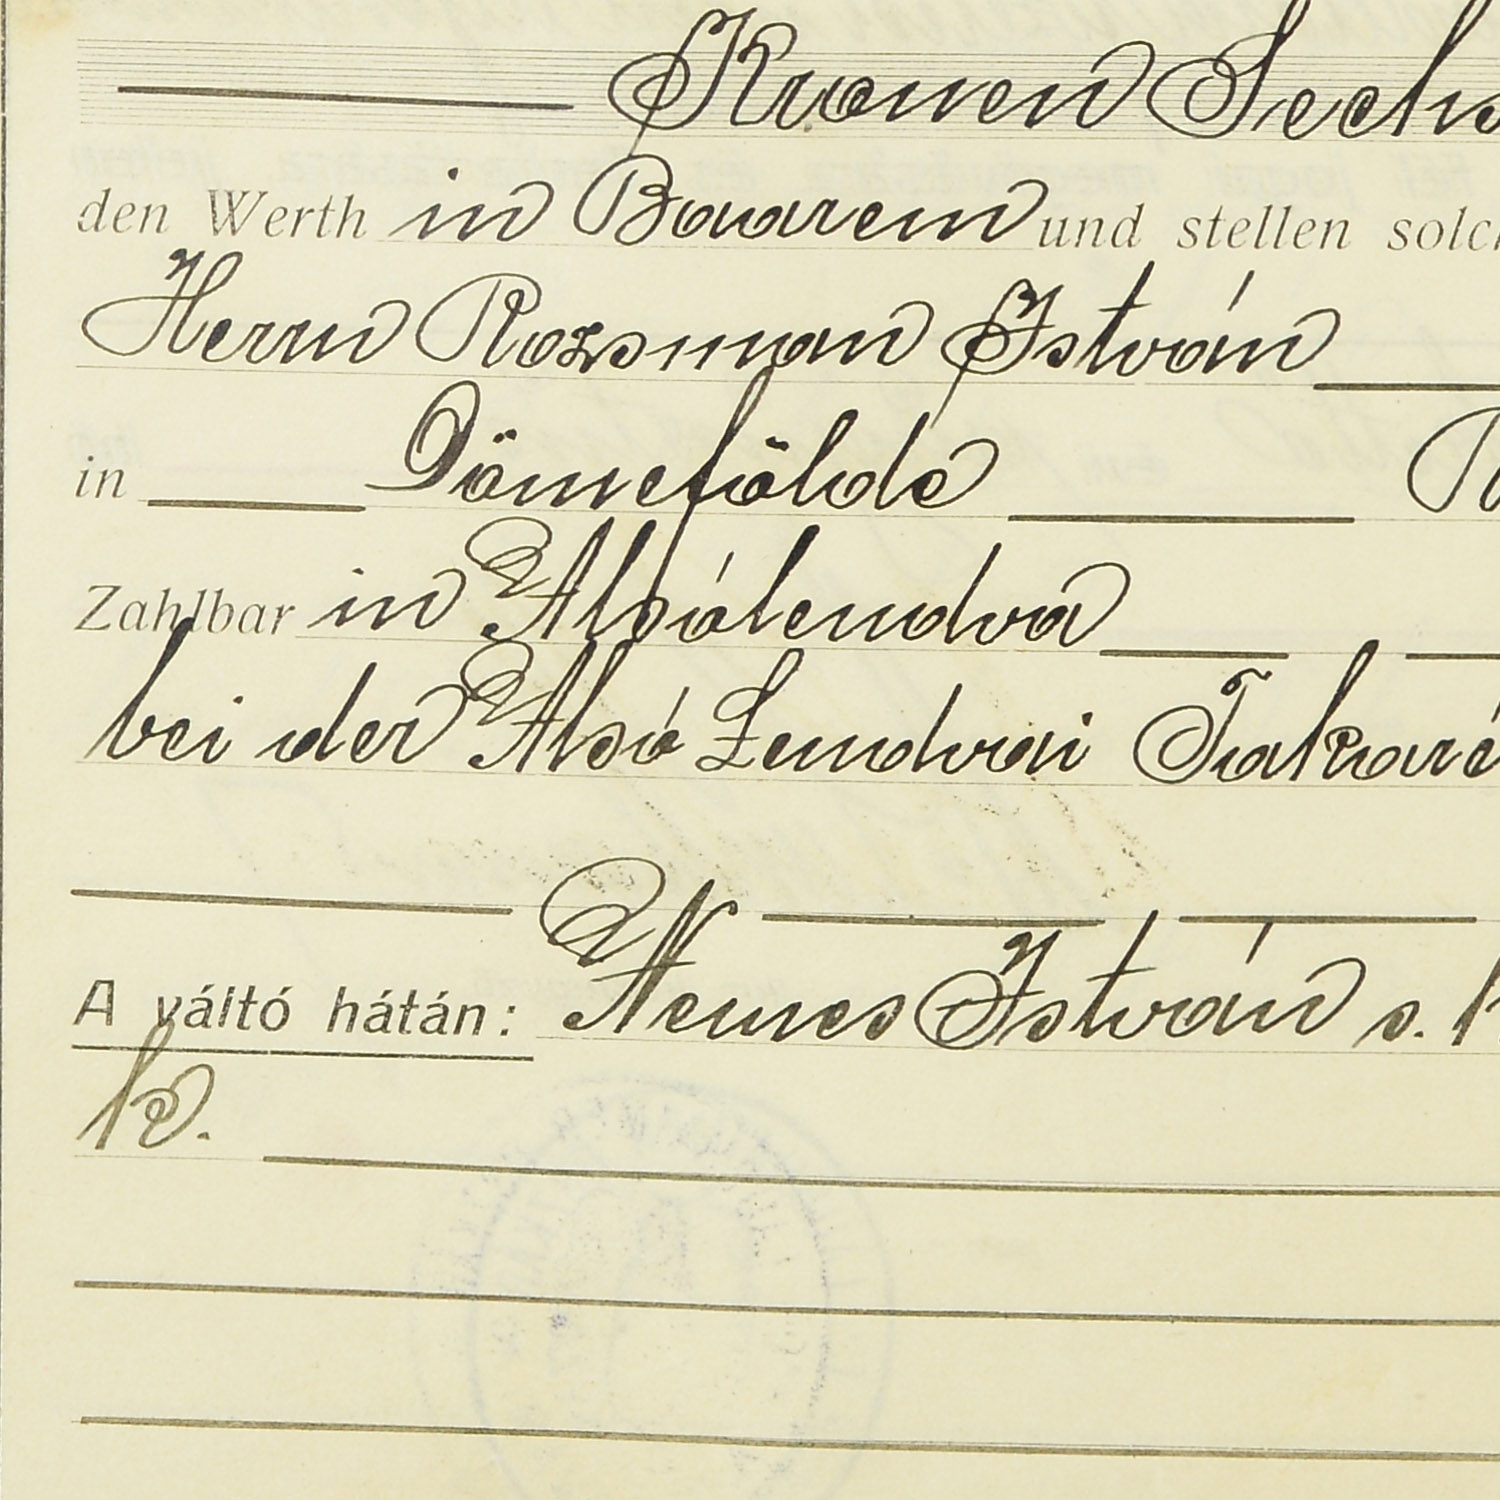 Kronen Sechs
den Werth in Baarem und stellen solch
Herrn Rozsman István
in Dömeföldé
Zahlbar in Alsólendva
bei der Alsó Lendvai Takaré
A váltó hátán: Nemes István s. k
k.